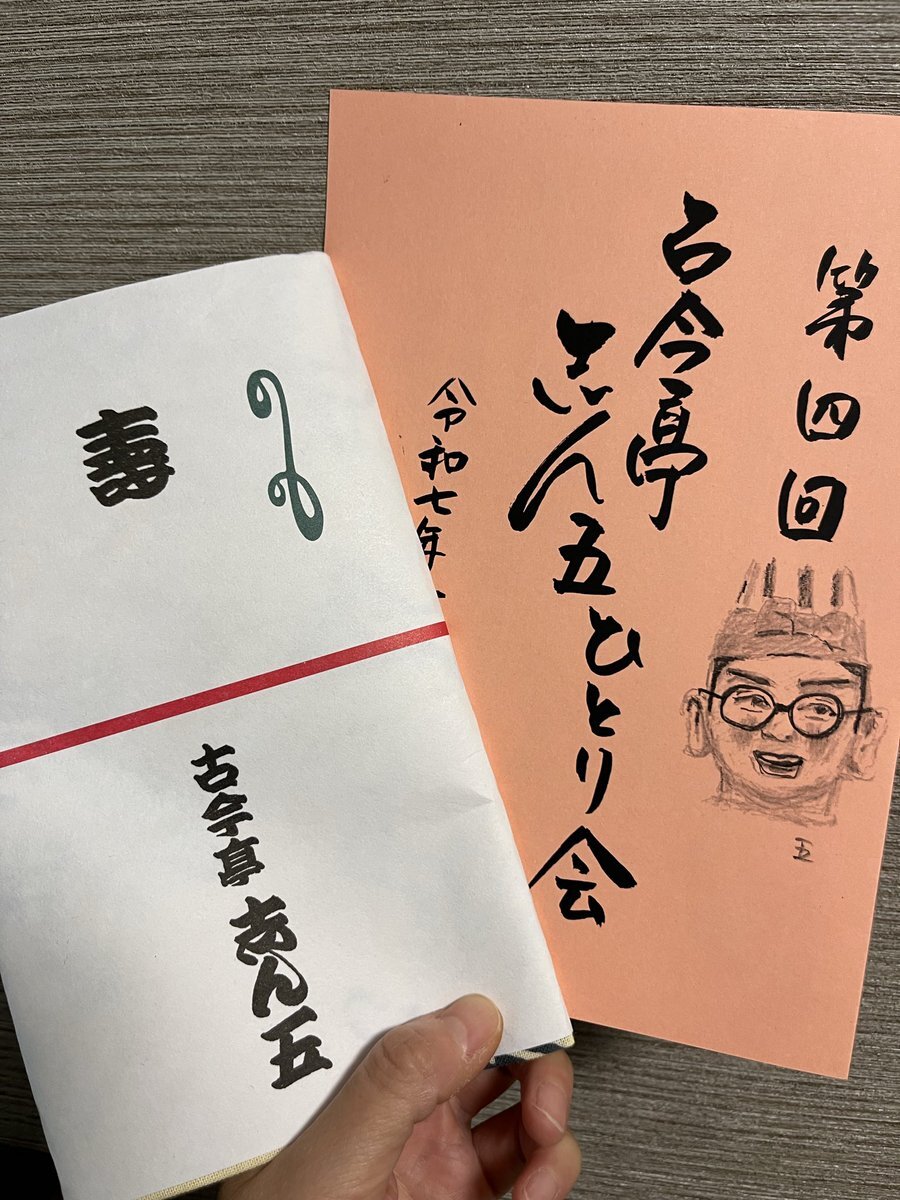 第四回
古今亭
志ん五ひとり会
令和七年
五
寿
の
古今亭 志ん五